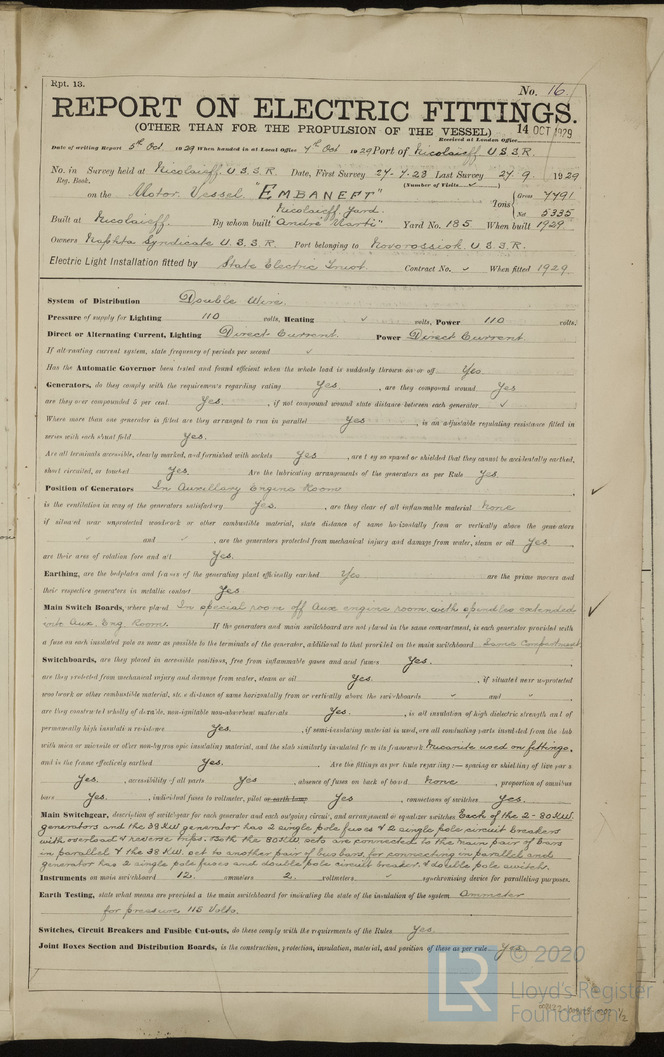 Rpt. 13.
No. 16.
REPORT ON ELECTRIC FITTINGS.
(OTHER THAN FOR THE PROPULSION OF THE VESSEL)
Received at London Office 14 OCT 1929
Date of writing Report 5th Oct 1929 When handed in at Local Office 7th Oct 1929 Port of Nicolaieff U.S.S.R.
No. in Survey held at Nicolaieff U.S.S.R. Date, First Survey 27.7.23 Last Survey 27.9.1929
Reg. Book. (Number of Visits ✓)
on the Motor Vessel "EMBANEFT" Tons { Gross 7791 Net 5335
Built at Nicolaieff. By whom built Nicolaieff Yard. "André Marti" Yard No. 185 When built 1929
Owners Naphta Syndicate U.S.S.R. Port belonging to Novorossisk. U.S.S.R.
Electric Light Installation fitted by State Electric Trust Contract No. ✓ When fitted 1929.
System of Distribution Double Wire.
Pressure of supply for Lighting 110 volts, Heating ✓ volts, Power 110 volts;
Direct or Alternating Current, Lighting Direct Current. Power Direct Current.
If alternating current system, state frequency of periods per second ✓
Has the Automatic Governor been tested and found efficient when the whole load is suddenly thrown on or off Yes
Generators, do they comply with the requirements regarding rating Yes, are they compound wound Yes
are they over compounded 5 per cent. Yes., if not compound wound state distance between each generator ✓
Where more than one generator is fitted are they arranged to run in parallel Yes, is an adjustable regulating resistance fitted in
series with each shunt field Yes.
Are all terminals accessible, clearly marked, and furnished with sockets Yes, are they so spaced or shielded that they cannot be accidentally earthed,
short circuited, or touched Yes. Are the lubricating arrangements of the generators as per Rule Yes.
Position of Generators In Auxillary Engine Room
is the ventilation in way of the generators satisfactory Yes., are they clear of all inflammable material None
if situated near unprotected woodwork or other combustible material, state distance of same horizontally from or vertically above the generators
" and ", are the generators protected from mechanical injury and damage from water, steam or oil Yes
are their axes of rotation fore and aft Yes.
Earthing, are the bedplates and frames of the generating plant efficiently earthed Yes are the prime movers and
their respective generators in metallic contact Yes
Main Switch Boards, where placed In special room off Aux engine room with spindles extended
into Aux. Eng Room. If the generators and main switchboard are not placed in the same compartment, is each generator provided with
a fuse on each insulated pole as near as possible to the terminals of the generator, additional to that provided on the main switchboard Same Compartment
Switchboards, are they placed in accessible positions, free from inflammable gases and acid fumes Yes.
are they protected from mechanical injury and damage from water, steam or oil Yes., if situated near unprotected
woodwork or other combustible material, state distance of same horizontally from or vertically above the switchboards " and "
are they constructed wholly of durable, non-ignitable non-absorbent materials Yes., is all insulation of high dielectric strength and of
permanently high insulation resistance Yes., if semi-insulating material is used, are all conducting parts insulated from the slab
with mica or micanite or other non-hygroscopic insulating material, and the slab similarly insulated from its framework Micanite used on fittings.
and is the frame effectively earthed Yes. Are the fittings as per Rule regarding:— spacing or shielding of live parts
Yes., accessibility of all parts Yes, absence of fuses on back of board None, proportion of omnibus
bars Yes., individual fuses to voltmeter, pilot or earth lamp Yes, connections of switches Yes.
Main Switchgear, description of switchgear for each generator and each outgoing circuit, and arrangement of equalizer switches Each of the 2-80KW.
generators and the 38KW generator has 2 single pole fuses & 2 single pole circuit breakers
with overload & reverse trips. Both the 80KW sets are connected to the main pair of bars
in parallel & the 38 KW set to another pair of bus bars, for connecting in parallel and
generator has 2 single pole fuses and double pole circuit breaker & double pole switch.
Instruments on main switchboard 12. ammeters 2. voltmeters " synchronising device for paralleling purposes.
Earth Testing, state what means are provided on the main switchboard for indicating the state of the insulation of the system Ammeter
for pressure 115 Volts.
Switches, Circuit Breakers and Fusible Cut-outs, do these comply with the requirements of the Rules Yes.
Joint Boxes Section and Distribution Boards, is the construction, protection, insulation, material, and position of these as per rule Yes
LR © 2020
Lloyd's Register
Foundation